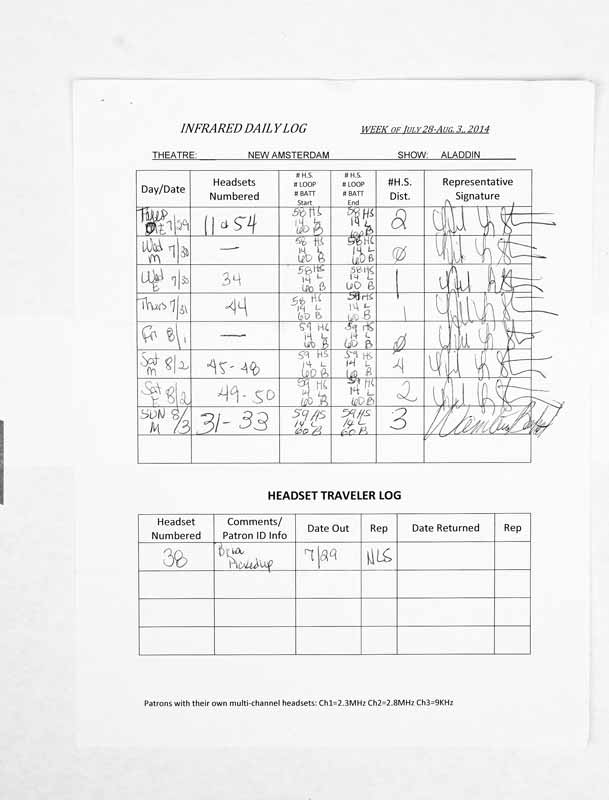 INFRARED DAILY LOG WEEK OF JULY 28-AUG. 3, 2014
THEATRE: NEW AMSTERDAM SHOW: ALADDIN
Day/Date Headsets Numbered # H.S. # LOOP # BATT Start # H.S. # LOOP # BATT End #H.S. Dist. Representative Signature
Tues E 7/29 11 54 58 HS 14 L 60 B 58 HS 14 L 60 B 2
Wed M 7/30 — 58 HS 14 L 60 B 58 HS 14 L 60 B Ø
Wed E 7/30 34 58 HS 14 L 60 B 58 HS 14 L 60 B 1
Thurs 7/31 44 58 HS 14 L 60 B 59 HS 14 L 60 B 1
Fri 8/1 — 59 HS 14 L 60 B 59 HS 14 L 60 B Ø
Sat M 8/2 45-48 59 HS 14 L 60 B 59 HS 14 L 60 B 4
Sat E 8/2 49-50 59 HS 14 L 60 B 59 HS 14 L 60 B 2
SUN M 8/3 31-33 59 HS 14 L 60 B 59 HS 14 L 60 B 3
HEADSET TRAVELER LOG
Headset Numbered Comments/ Patron ID Info Date Out Rep Date Returned Rep
38 Picked up 7/29 NLS
Patrons with their own multi-channel headsets: Ch1=2.3MHz Ch2=2.8MHz Ch3=9KHz